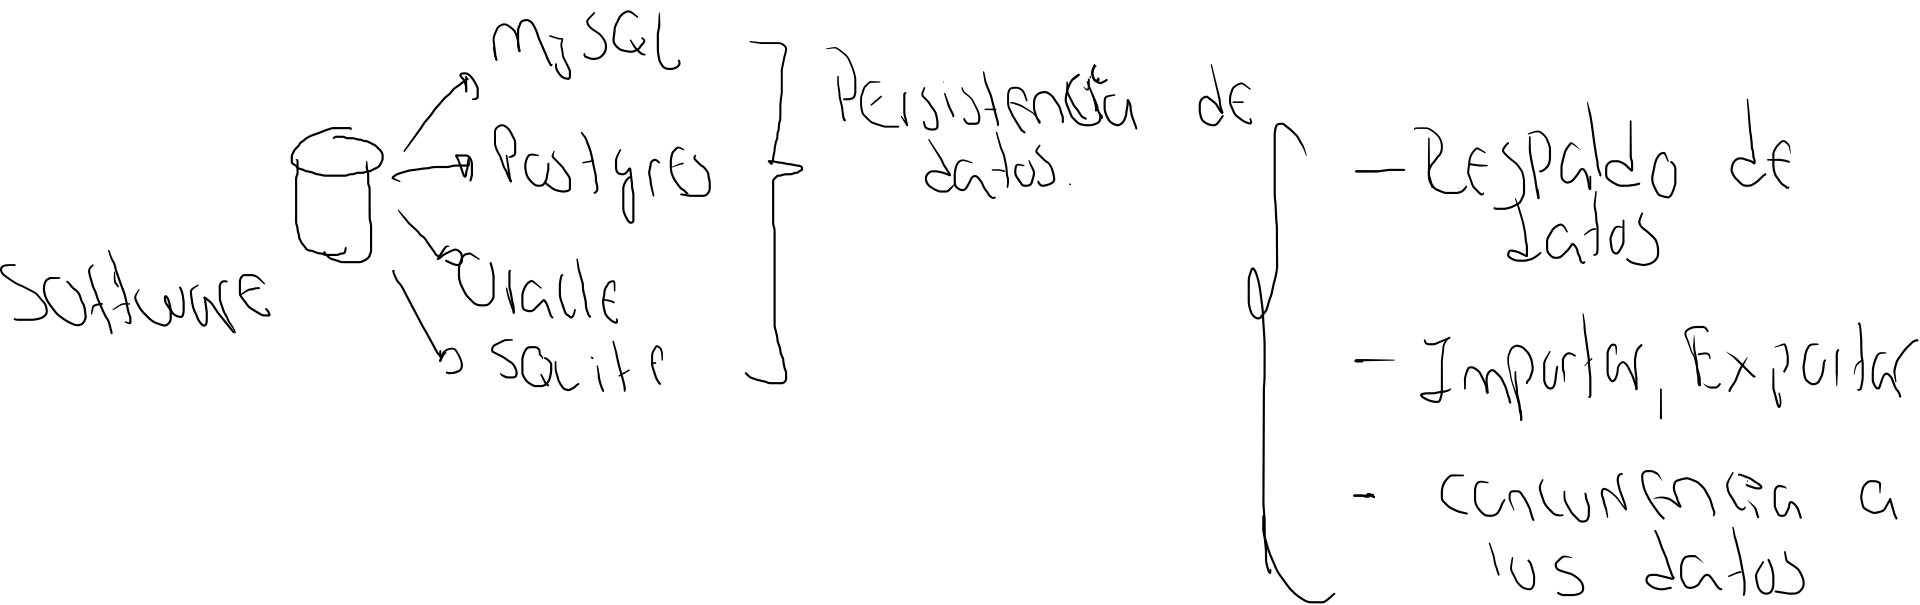 Software
MySQL
Postgres
Oracle
SQLite
Persistencia de
datos.
- Respaldo de
datos
- Importar, Exportar
- Concurrencia a
los datos